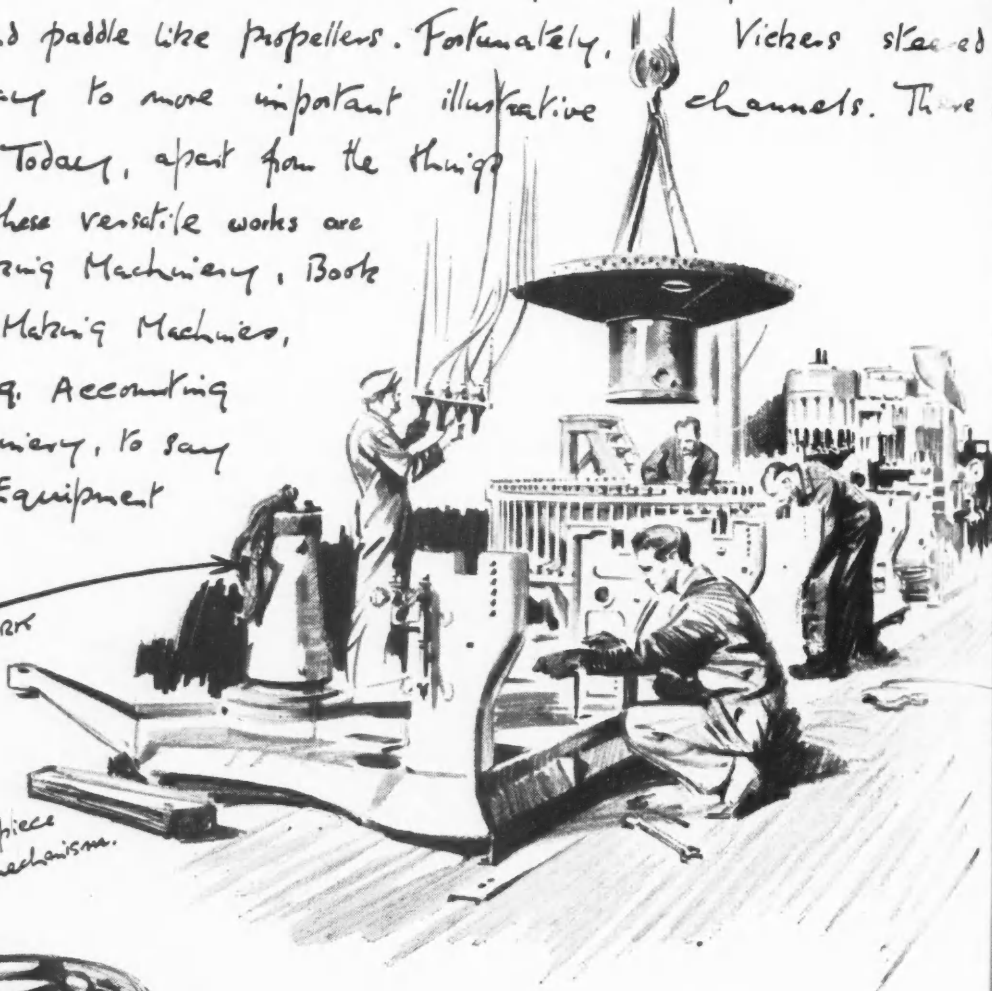 paddle like propellers. Fortunately, Vickers steered
to more important illustrative channels. There
Today, apart from the things
these versatile works are
Machinery, Book
Making Machines,
Accounting
to say
Equipment
piece
mechanism.